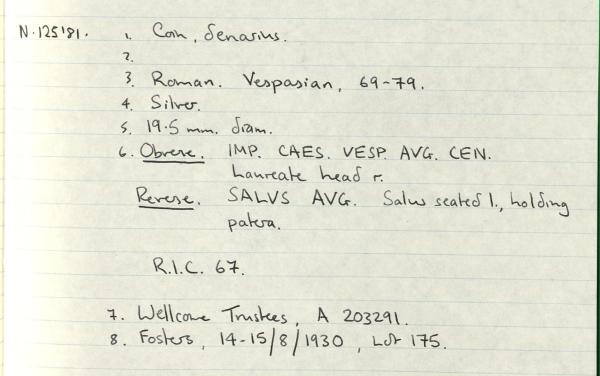 N.125'81. 1. Coin, denarius.
2.
3. Roman. Vespasian, 69-79.
4. Silver.
5. 19.5 mm. diam.
6. Obverse. IMP. CAES. VESP. AVG. CEN.
Laureate head r.
Reverse. SALVS AVG. Salus seated l., holding
patera.
R.I.C. 67.
7. Wellcome Trustees, A 203291.
8. Fosters, 14-15/8/1930, Lot 175.